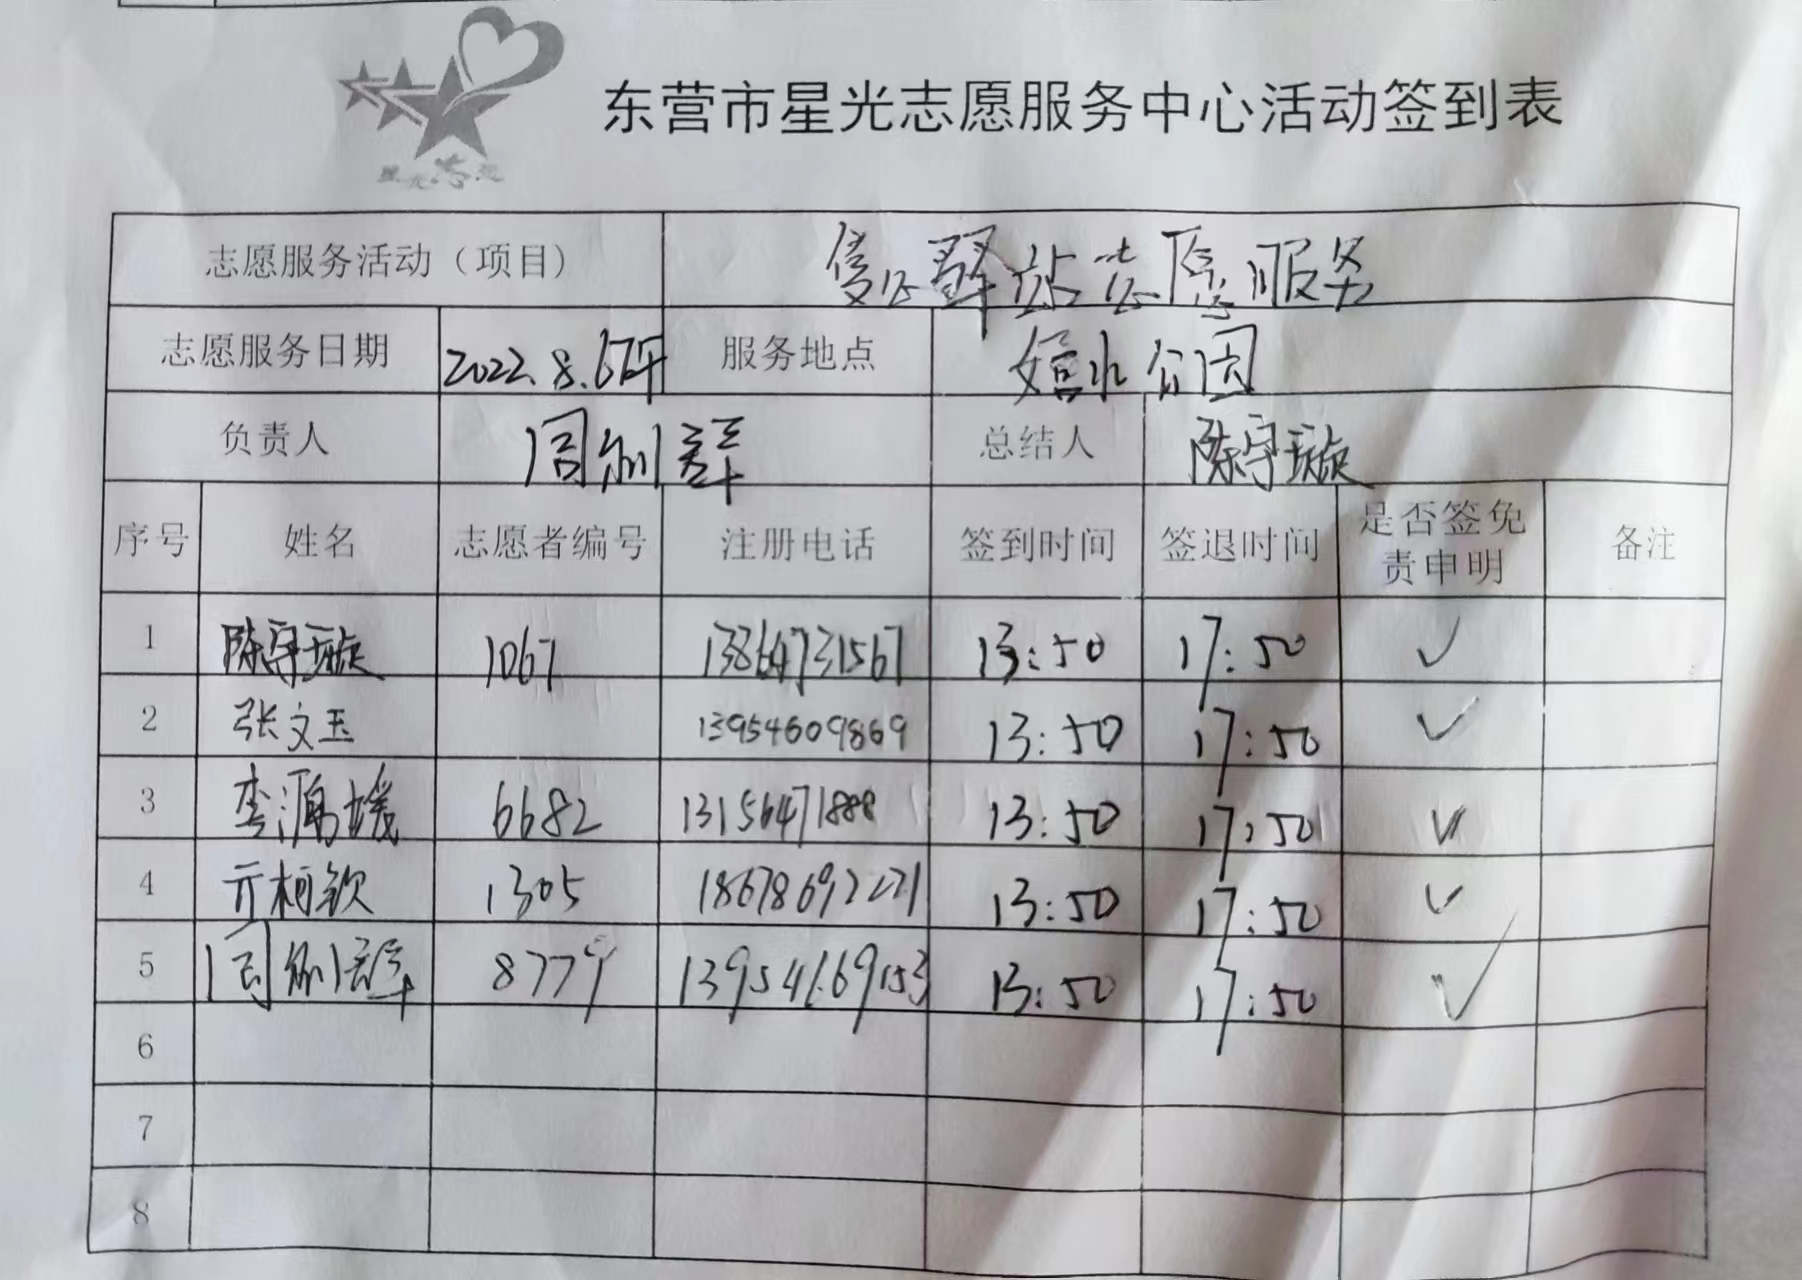 星光志愿
东营市星光志愿服务中心活动签到表
志愿服务活动（项目） 驿站志愿服务
志愿服务日期 2022.8.6下午 服务地点 嬉水公园
负责人 周 总结人 陈守璇
序号 姓名 志愿者编号 注册电话 签到时间 签退时间 是否签免责申明 备注
1 陈守璇 1067 13864731567 13:50 17:50 ✓
2 张文玉 13954609869 13:50 17:50 ✓
3 6682 13156471888 13:50 17:50 ✓
4 亓柯钦 1305 18678692221 13:50 17:50 ✓
5 周 8779 13954169153 13:50 17:50 ✓
6
7
8